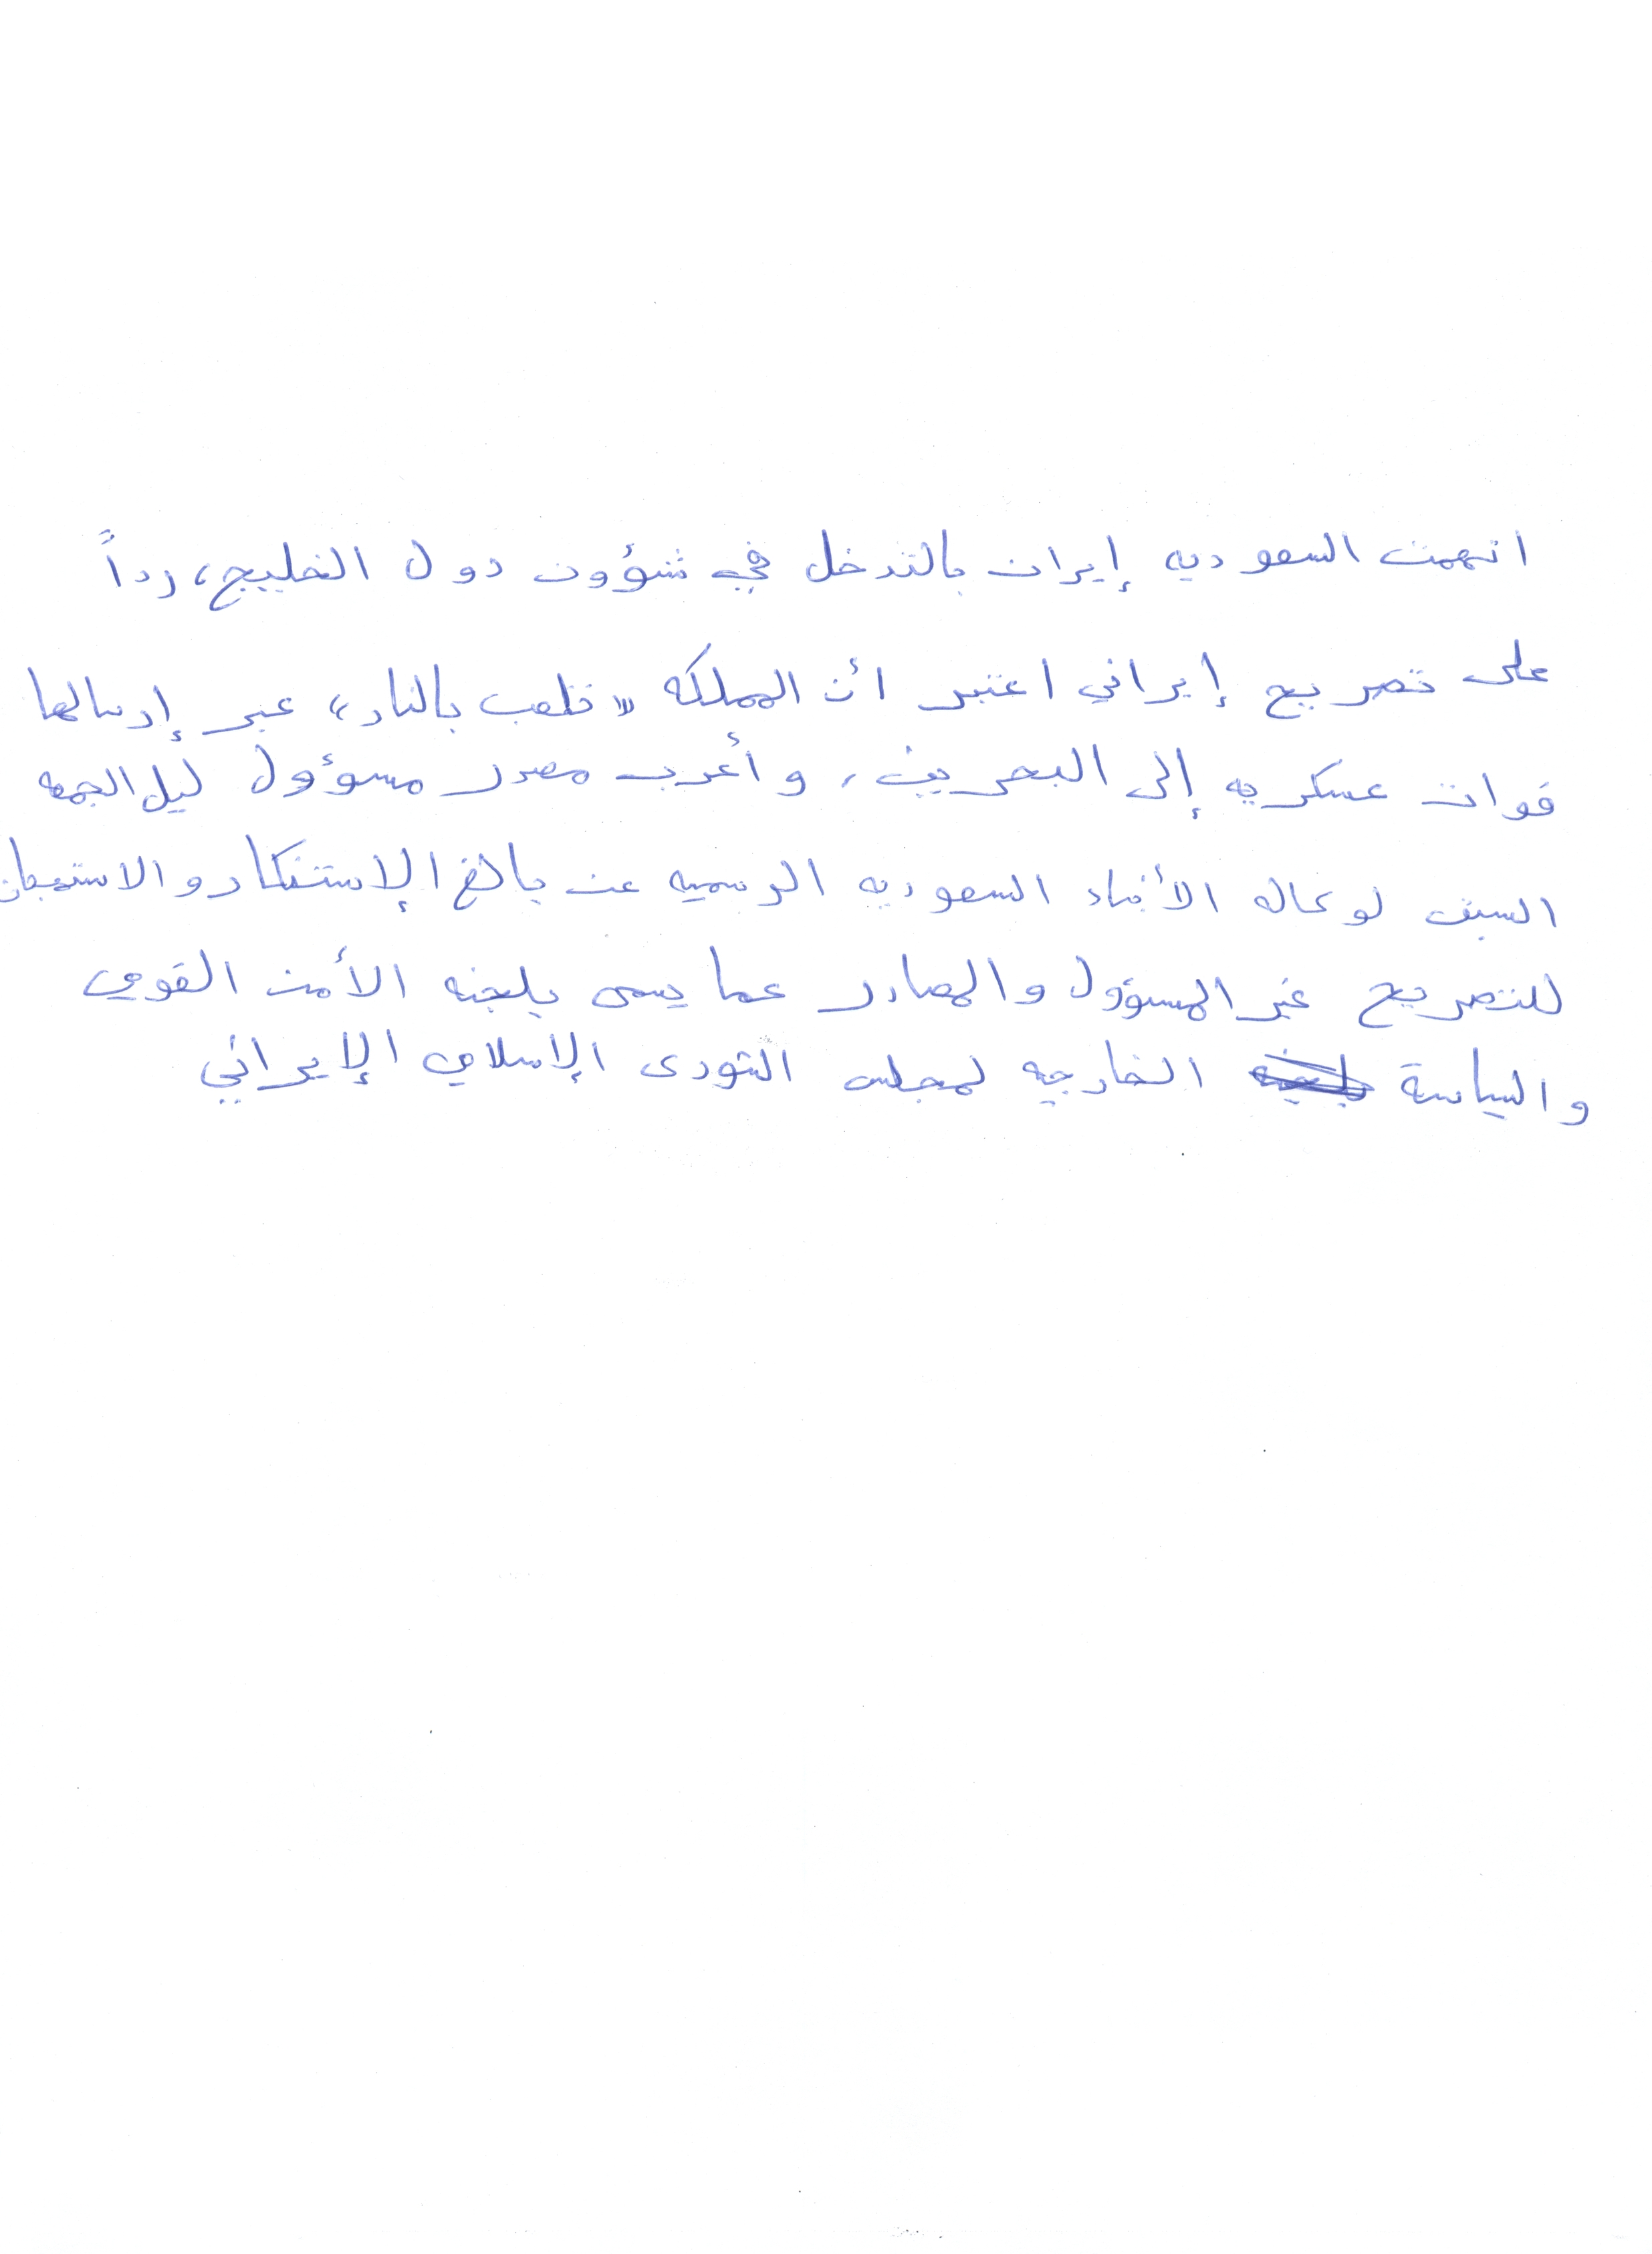 اتهمت السعوديه إيران بالتدخل في شؤون دول الخليج، رداً
على تصريح إيراني اعتبر أن المملكه "تلعب بالنار" عبر إرسالها
قوات عسكريه إلى البحرين، وأعرب مصدر مسوؤول ليل الجمعه
السبت لوكاله الأنباء السعوديه الرسميه عن بالغ الإستنكار والاستهجان
للتصريح غير المسؤول والصادر عما يسمى بلجنه الأمن القومي
والسياسة الخارجيه لمجلس الشورى الإسلامي الإيراني